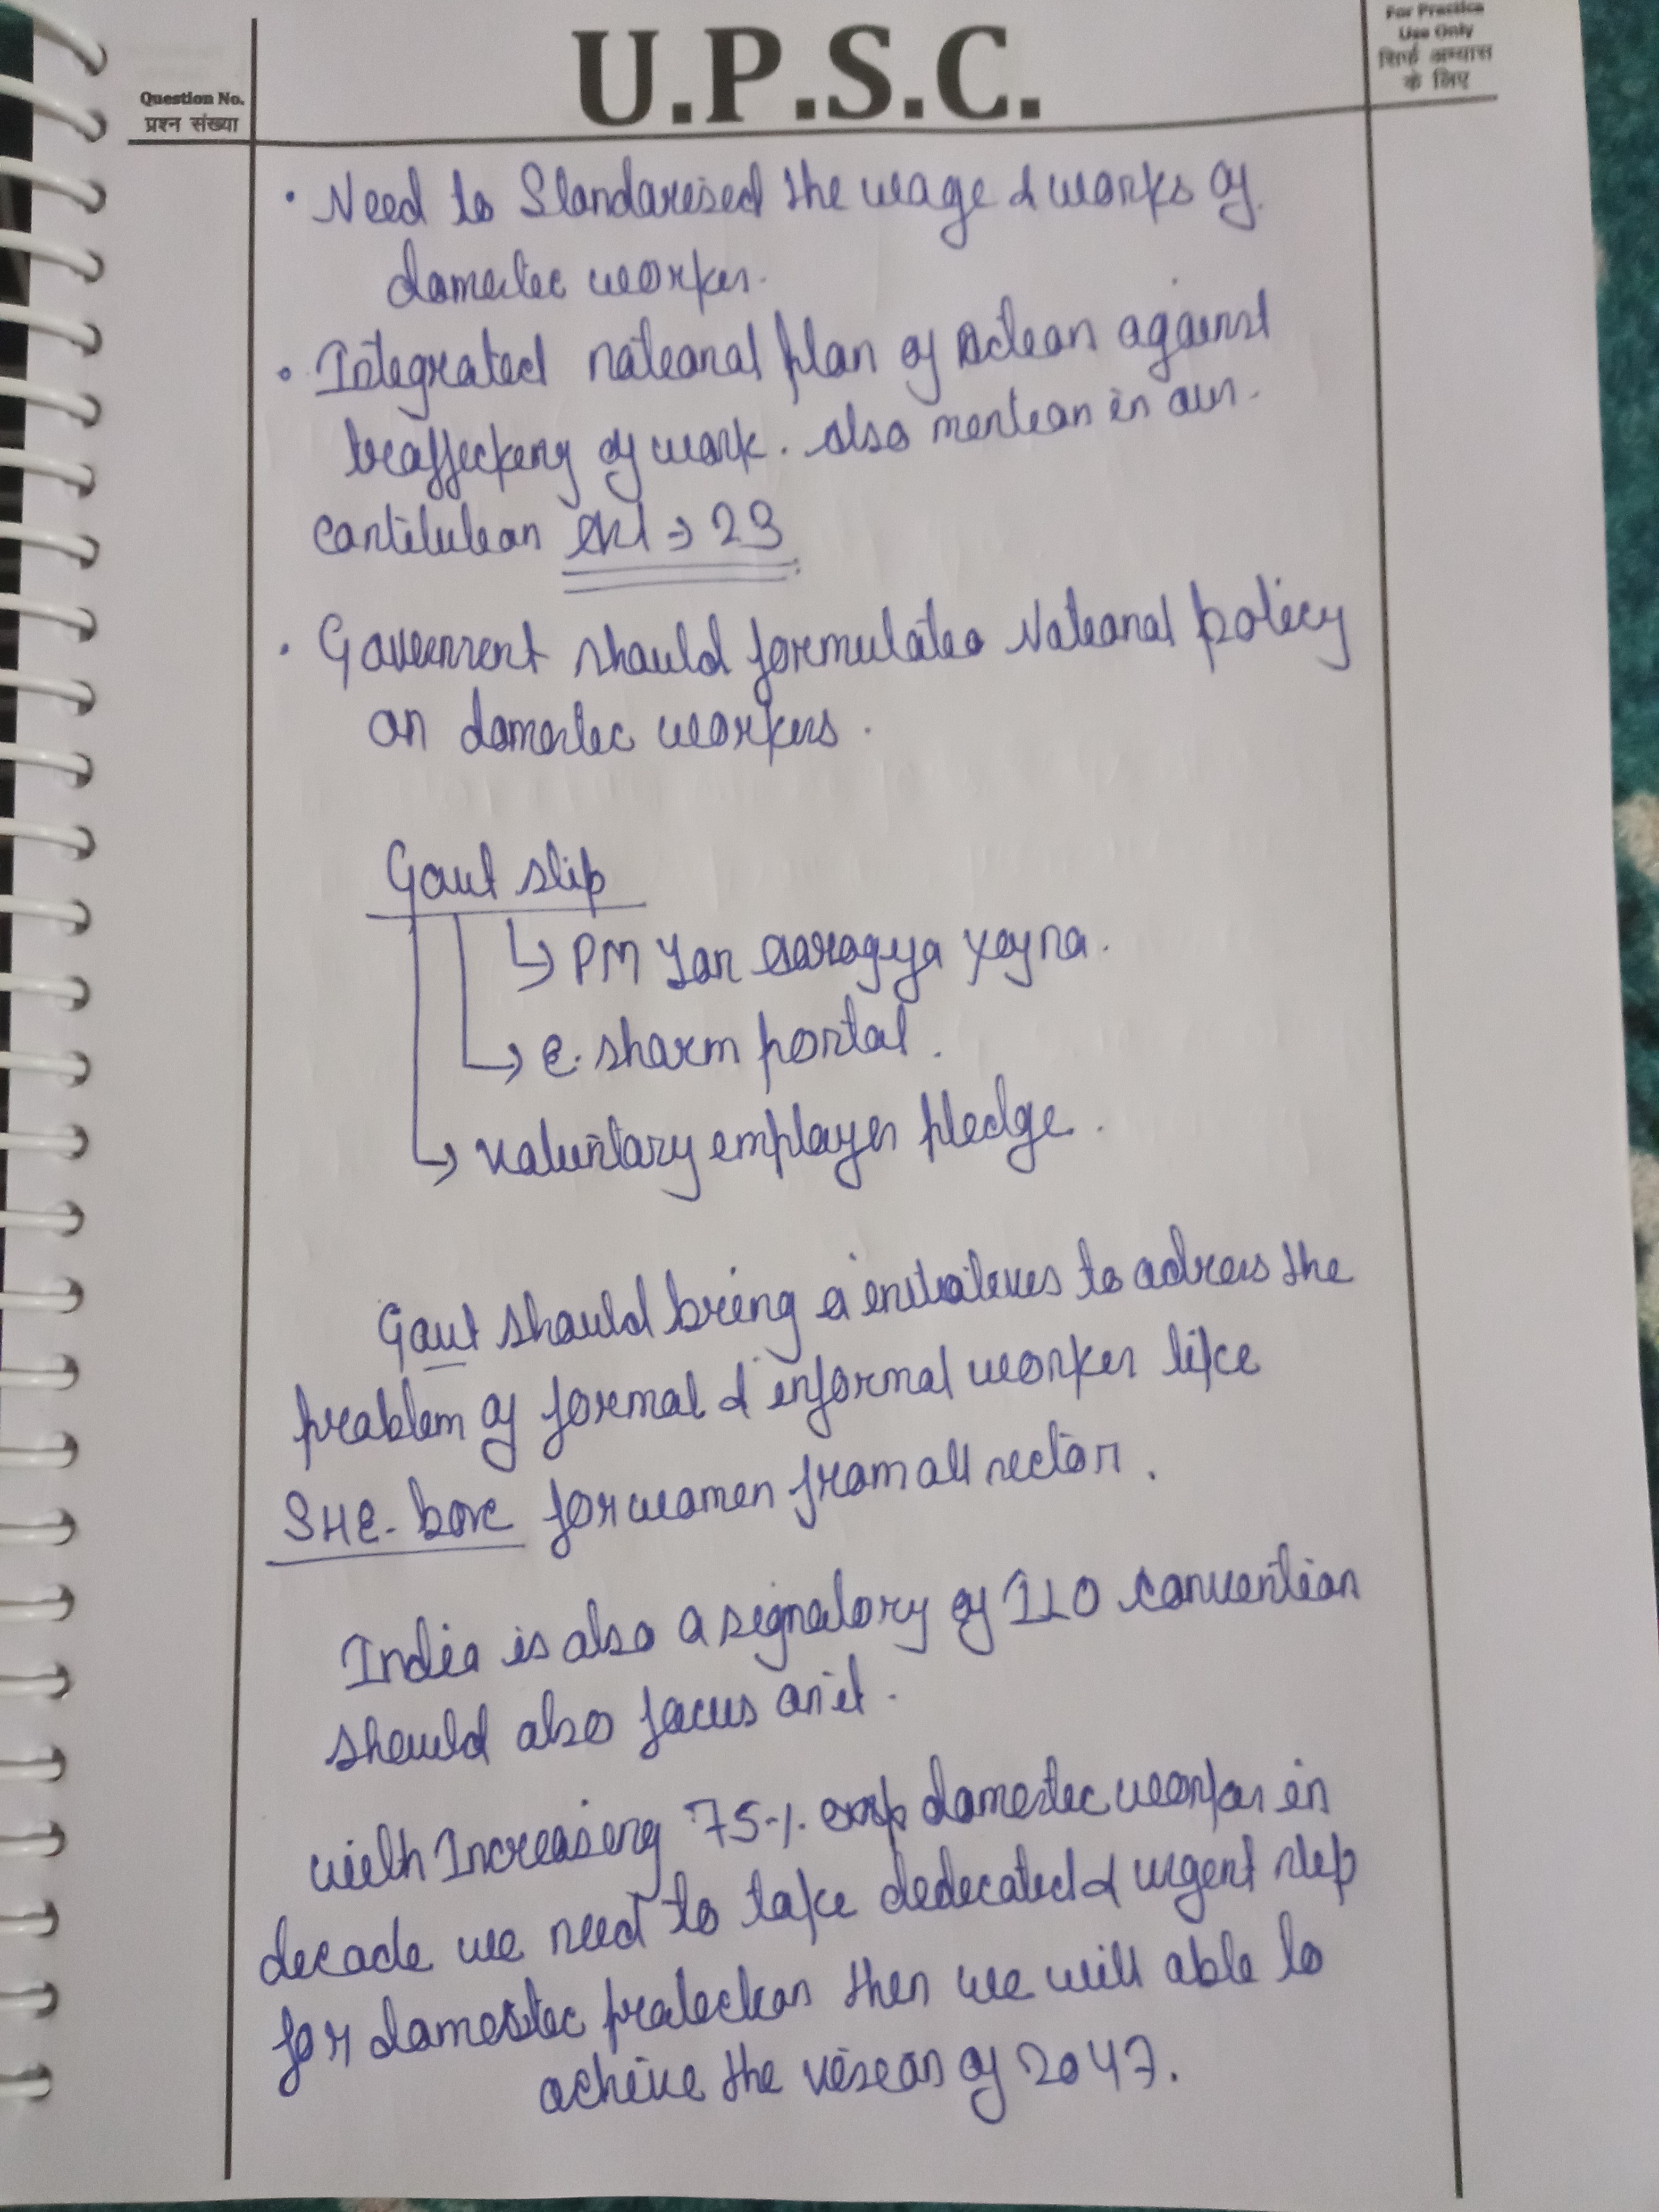 For Practice
Use Only
सिर्फ अभ्यास
के लिए
Question No.
प्रश्न संख्या
U.P.S.C.
• Need to Standarised the wage & works of
domestic worker.
• Integrated national plan of Action against
trafficking of work. also mention in our
contitution Art → 23
• Goverment should formulates National policy
on domestic workers.
Govt step
↳ PM Jan aarogya Yojna.
↳ E. sharm portal.
↳ voluntary employer pledge.
Govt should bring a initiatives to adress the
problem of formal & informal worker like
SHE-box for women from all sector.
India is also a signatory of ILO convention
should also focus on it.
with Increasing 75% domestic worker in
decade we need to take dedicated & urgent step
for domestic protection then we will able to
achive the vision of 2047.